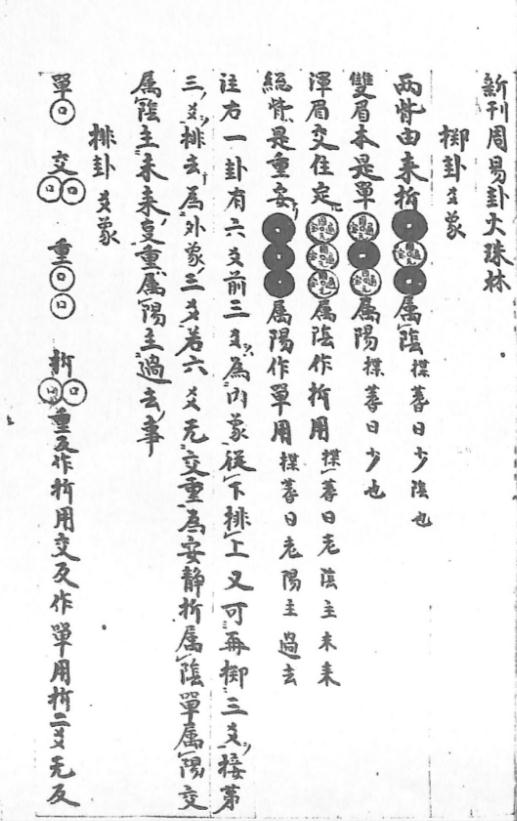 新刊周易卦火珠林
擲卦爻象
兩背由来拆 属陰 揲蓍曰少陰也
雙眉本是單 属陽 揲蓍曰少也
渾眉交住定 属陰作拆用 揲蓍曰老陰主未来
總背是重安 属陽作單用 揲蓍曰老陽主過去
注右一卦有六爻前三爻為内象従下排上又可再擲三爻接第
三爻排去為外象三爻若六爻无交重為安静拆属陰單属陽交
属陰主未来重属陽主過去事
排卦爻象
單 交 重 拆 重反作拆用交反作單用拆二爻无反